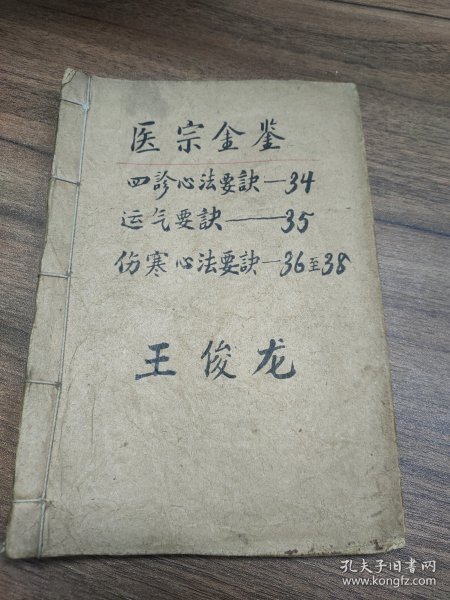 医宗金鉴
四診心法要訣—34
运气要訣——35
伤寒心法要訣—36至38
王俊龙
孔夫子旧书网
www.kongfz.com